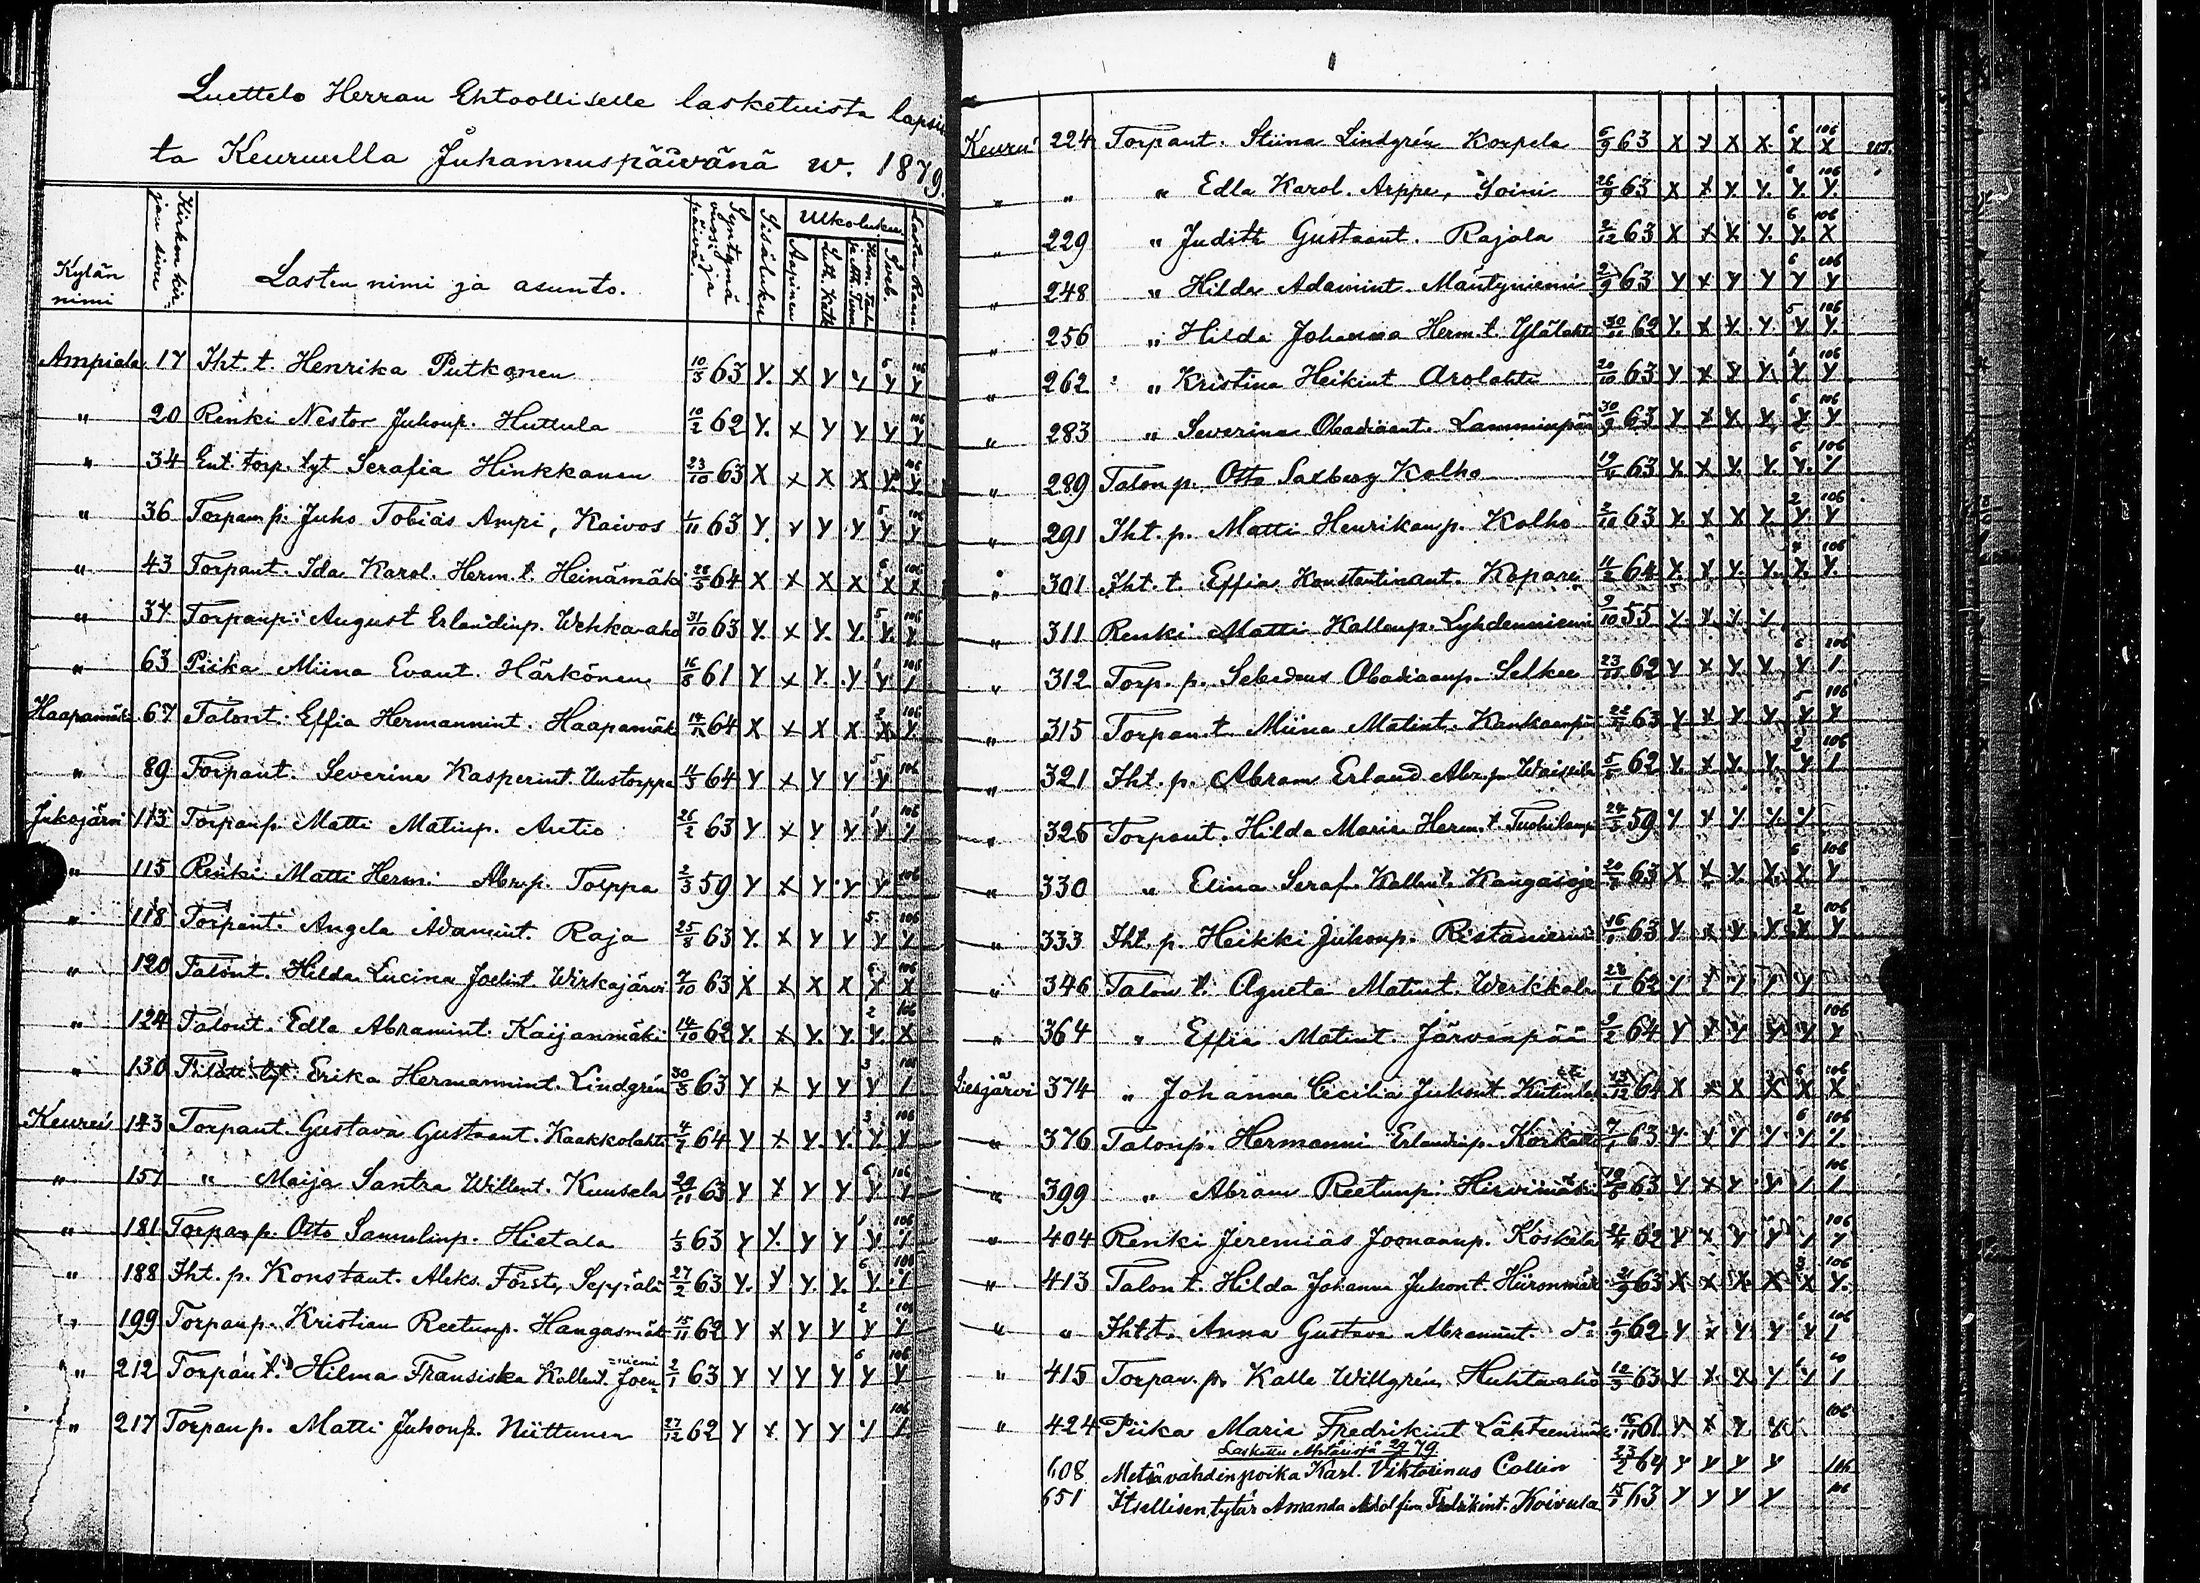 Luettelo Herran Ehtoolliselle lasketuista lapsis
ta Keuruulla Juhannuspäivänä w. 1879.
Kylän nimi
Kirkon kirjan sivu
Lasten nimi ja asunto.
Syntymä vuosi ja päivä
Sisäluku
Ulkoluku
Aapinen
Luth. Katk.
Ampiala 17 Iht. t. Henrika Putkonen 10/5 63 Y. X Y Y 6 Y 106 Y
" 20 Renki Nestor Juhonp. Huttula 10/2 62 Y. X Y Y Y 106 Y
" 34 Ent. torp. tyt Serafia Hinkkanen 23/10 63 X X X X Y. 106 Y.
" 36 Torpan p. Juho Tobias Ampi, Kaivos 1/11 63 Y. Y Y Y 5 Y 106 Y
" 43 Torpant. Ida Karol. Herm. t. Heinämäki 28/5 64 X X X X 6 X 106 X
" 37 Torpanp. August Erlandinp. Wehka-aho 31/10 63 Y. X Y. Y. 5 Y. 106 Y.
" 63 Piika Miina Evant. Härkönen 16/8 61 Y X Y. Y 1 Y 106 1
Haapamäki 67 Talont. Effia Hermannint. Haapamäk 64 X X X X 2 X 106 Y.
" 89 Torpant. Severina Kasperint. Uustorppa 4/5 64 Y X Y Y 5 Y 106
Jukojärvi 113 Torpanp. Matti Matinp. Autio 26/2 63 Y X Y Y 1 Y 106 Y
" 115 Renki Matti Herm. Abr.p. Torppa 2/3 59 Y X Y Y Y 106
" 118 Torpant. Angela Adamint. Raja 25/8 63 Y. X Y Y 5 Y 106 Y
" 120 Talont. Hilda Lucina Joelint. Wirkajärvi 7/10 63 X X X X 6 X 106 X
" 124 Talont. Edla Abramint. Kaijanmäki 14/10 62 Y. X Y. Y. 2 Y. 106 X
" 130 Erika Hermannint. Lindgrén 30/5 63 Y X Y Y 3 Y 106 1
Keuruu 143 Torpant Gustava Gustaant. Kaakkolahti 4/1 64 Y X Y. Y. 3 Y. 106 Y
" 157 " Maija Santra Willent. Kuusela 29/11 63 Y X Y Y. 6 Y 106 Y
" 181 Torpan p. Otto Samulinp. Hietala 1/5 63 Y Y. Y Y 1 Y 106 1
" 188 Iht. p. Konstant. Aleks. Först, Seppälä 27/2 63 Y. Y Y. Y. 6 Y. 106 1
" 199 Torpanp. Kristian Reetunp. Hangasmäk 15/11 62 Y X Y Y 2 Y 106 Y
" 212 Torpan t. Hilma Fransiska Kallent. Joen=niemi 2/1 63 Y Y Y Y 6 Y 106 Y
" 217 Torpanp. Matti Juhonp. Niittunen 27/12 62 Y X. Y Y Y 106 1
Keuruu 224 Torpant. Stiina Lindgrén Korpela 6/9 63 X Y X X. 6 X 106 X
" " " Edla Karol. Arppe, Soini 26/9 63 X X Y. Y. 6 Y. 106 Y.
" 229 " Judith Gustaant. Rajala 2/12 63 X X X. Y. 6 Y. 106 X
" 248 " Hilda Adamint. Mäntyniemi 2/9 63 Y X Y Y 6 Y 106 Y
" 256 " Hilda Johanna Herm. t. Ylälahti 30/11 62 Y. X Y. Y. 5 Y. 106 Y.
" 262 " Kristina Heikint Arolahti 20/10 63 Y X Y Y. 1 Y. 106 Y
" 283 " Severina Obadiaant. Lamminpää 30/9 63 Y X Y Y 6 Y 106 Y
" 289 Talon p. Otto Saxberg Kolho 19/11 63 Y. X Y. Y. 6 Y. 106 1
" 291 Iht. p. Matti Henrikanp. Kolho 2/10 63 Y. X X Y. 2 Y. 106 Y
" 301 Iht. t. Effia Konstantinaant. Kopare 11/2 64 Y. X Y. Y. 4 Y. 106 Y.
" 311 Renki Matti Kallenp. Lyhdenniemi 9/10 55 Y. Y. Y. Y
" 312 Torp. p. Sebedeus Obadiaanp. Selkee 62 Y X Y. Y. 6 Y 106 1
" 315 Torpan t. Miina Matint. Kankaanpää 63 Y X Y Y. 5 Y 106 Y
" 321 Iht. p. Abram Erland Abr.p. 62 Y. X Y. Y. 2 Y 106 1
" 325 Torpant. Hilda Maria Herm. t. 24/5 59 Y Y Y. Y. Y
" 330 " Elina Seraf. Kallent. Kangasoja 63 X X Y. X. 6 X 106 Y
" 333 Iht. p. Heikki Juhonp. Ristaniemi 16/1 63 Y X Y. Y. 2 X 106 Y
" 346 Talon t. Agneta Matint. Werkkala 28/1 62 Y Y Y Y Y
" 364 " Effia Matint. Järvenpää 9/2 64 Y X Y Y Y 106 Y
Liesjärvi 374 " Johanna Cecilia Juhont 64 X X X X 6 X 106 X
" 376 Talonp. Hermanni Erlandinp. 7/1 63 Y X Y Y 6 Y 106 Y.
" 399 " Abram Reetunp. Hirvimäki 63 Y X Y Y 1 106 1
" 404 Renki Jeremias Joonaanp. Koskela 62 Y X Y Y 1 106 Y
" 413 Talon t. Hilda Johanna Juhont. 63 X X X. X 3 X 106 Y.
" " Iht.t. Anna Gustava Abramint. d:o 1/9 62 Y X Y. Y 6 Y 106 1
" 415 Torpan p. Kalle Willgrén Huhta-aho 63 Y X. X. Y Y 1
" 424 Piika Maria Fredrikint Lähteenmäki 16/11 61 Y. X Y Y. 106
Laskettu 79
608 Metsävahdinpoika Karl. Viktorinus Collin 23/2 64 Y Y Y Y 106
651 Itsellisen tytär Amanda Adolfina Fredrikint. Koivula 15/1 63 Y Y Y Y 106